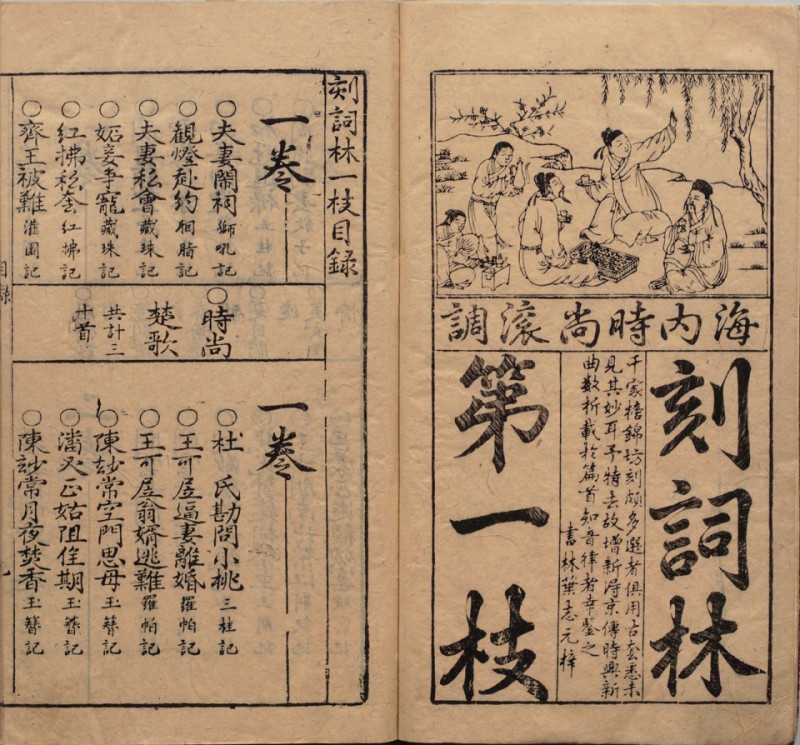 海内時尚滚調
刻詞林
千家摛錦坊刻頗多選者俱用古套悉未
見其妙耳予特去故增新淂京傳時興新
曲数折載於篇首知音律者幸鍳之
書林葉志元梓
第一枝
刻詞林一枝目録
一卷
○夫妻鬧祠 獅吼記
○觀燈赴約 胭脂記
○夫妻私會 藏珠記
○妬妾爭寵 藏珠記
○紅拂私奔 紅拂記
○齊王被難 灌園記
○時尚
楚歌
共計三
十首
一卷
○杜 氏勘問小桃 三桂記
○王可居逼妻離婚 羅帕記
○王可居翁婿逃難 羅帕記
○陳妙常空門思母 玉簪記
○潘必正姑阻佳期 玉簪記
○陳妙常月夜焚香 玉簪記
目錄